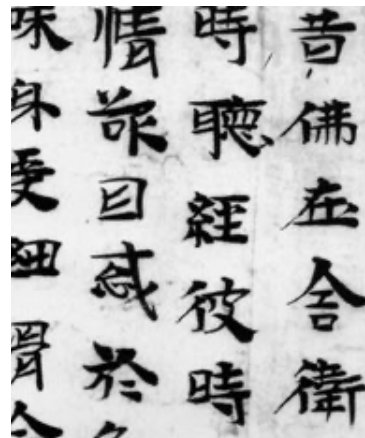 昔佛在舍衛
時聽經彼時
情欲目惑於色
味身受細滑念